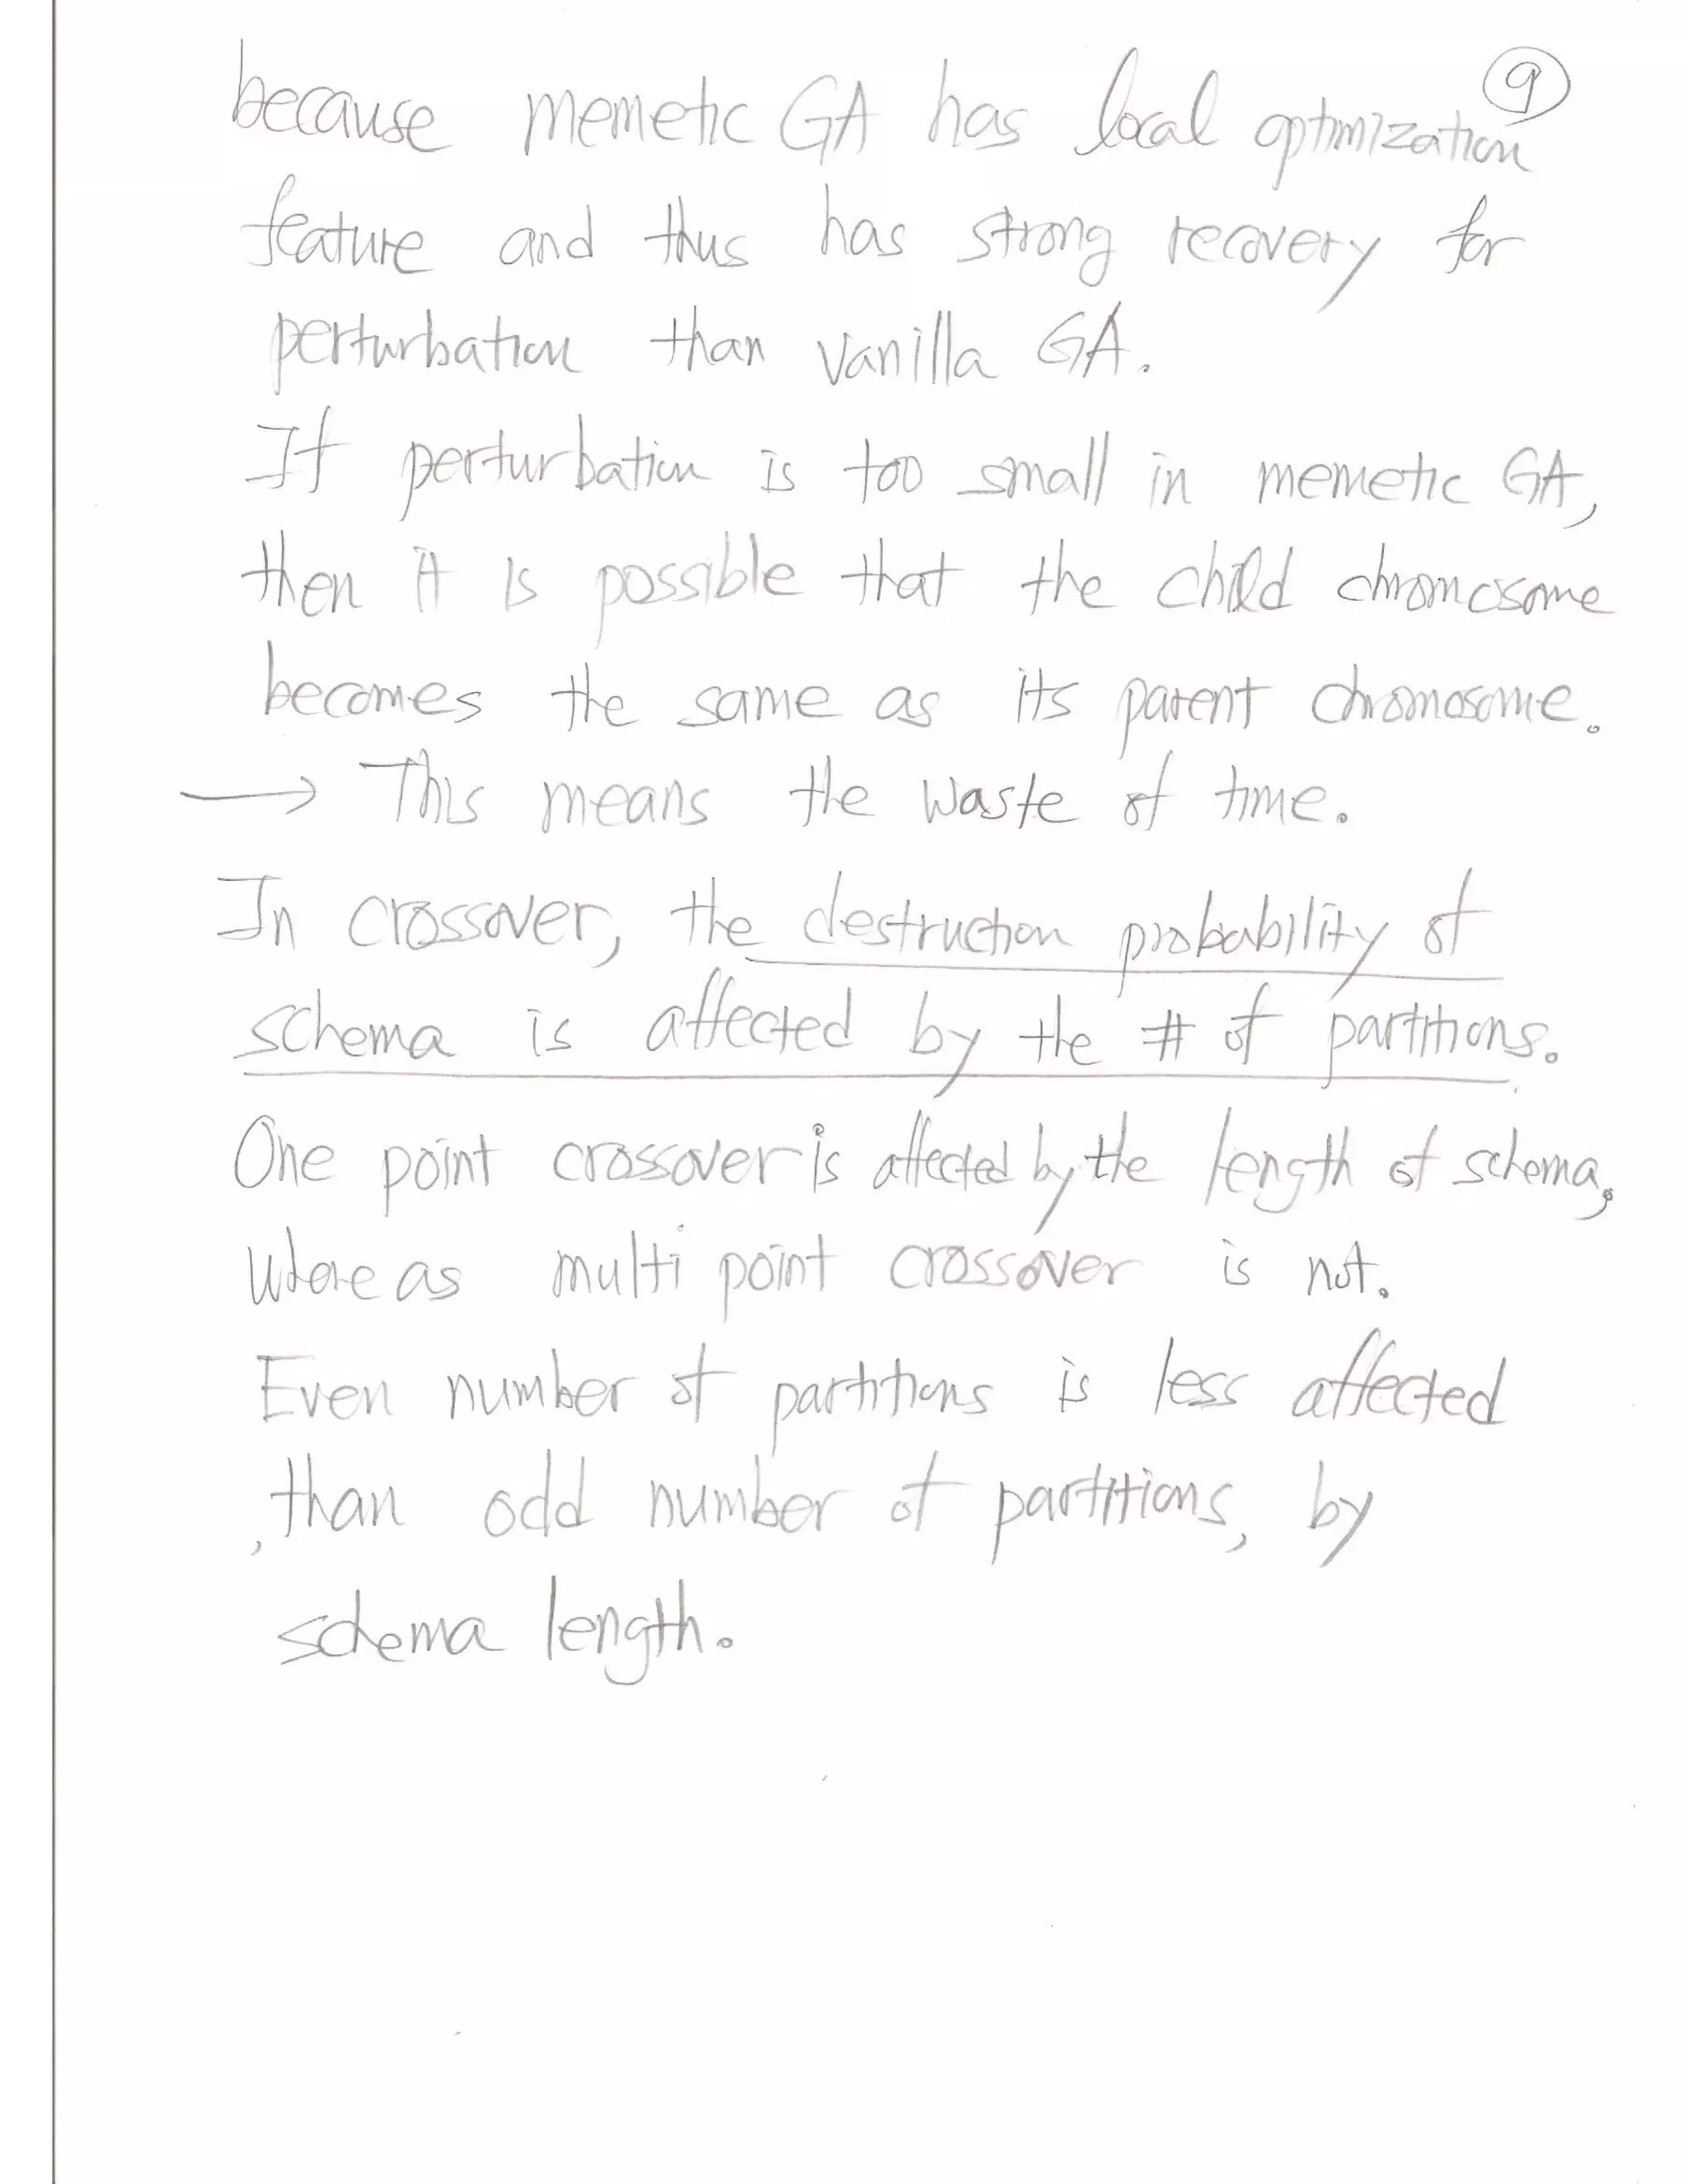 9
because memetic GA has local optimization
feature and thus has strong recovery for
perturbation than vanilla GA.
If perturbation is too small in memetic GA,
then it is possible that the child chromosome
becomes the same as its parent chromosome.
→ This means the waste of time.
In crossover, the destruction probability of
schema is affected by the # of partitions.
One point crossover is affected by the length of schema,
whereas multi point crossover is not.
Even number of partitions is less affected
, than odd number of partitions, by
schema length.